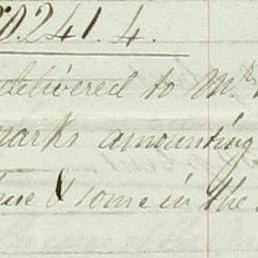 0.241.4.
delivered to Mr
marks amounting
& some in the